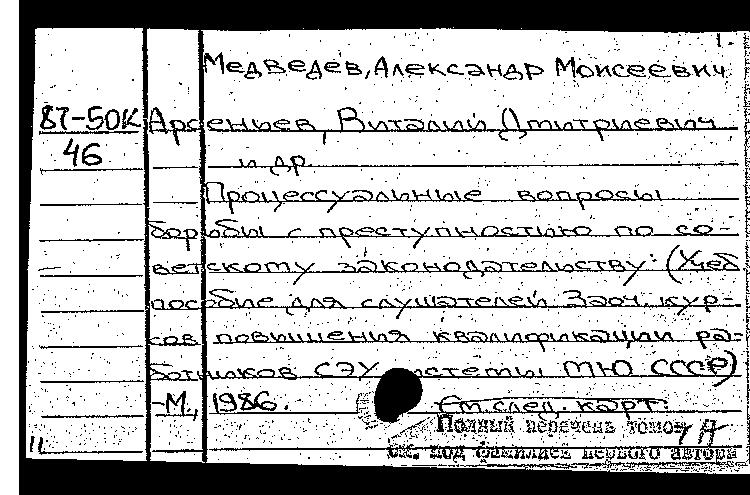 1.
Медведев, Александр Моисеевич
87-50К Арсеньев, Виталий Дмитриевич
46 и др.
Процессуальные вопросы
борьбы с преступностью по со-
ветскому законодательству: (Учеб
пособие для слушателей Заоч. кур-
сов повышения квалификации ра-
ботников СЭУ системы МЮ СССР)
-М., 1986.
См. след. карт.
Полный перечень томов
см. под фамилией первого автора
11